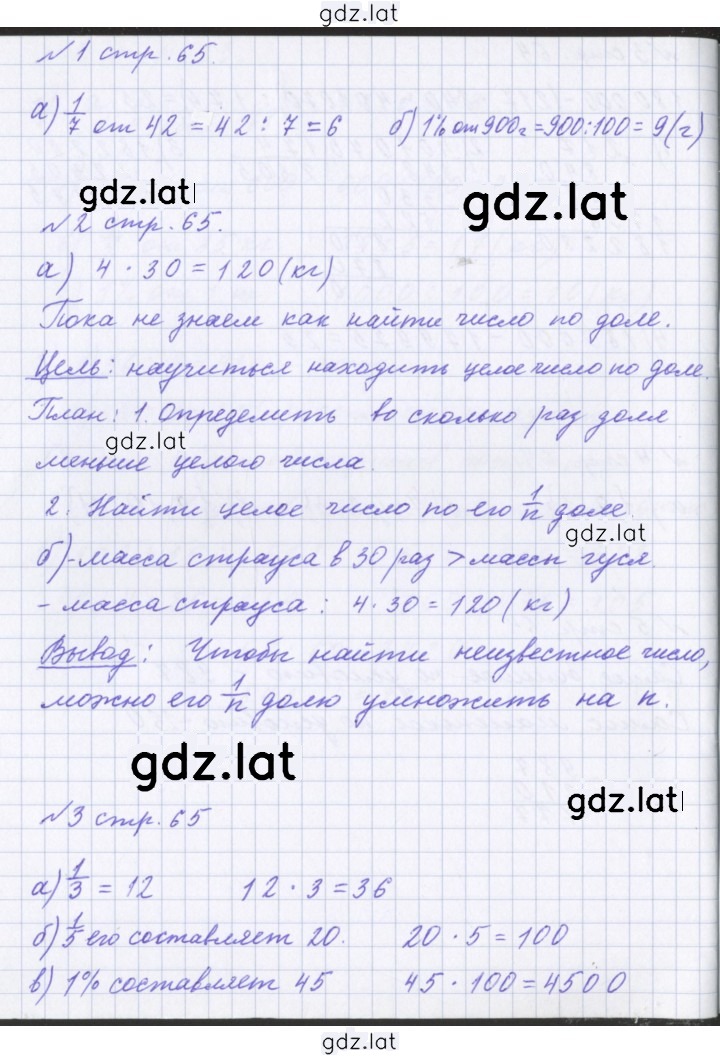 gdz.lat
№1 стр. 65.
а) 1/7 от 42 = 42 : 7 = 6 б) 1% от 900г = 900:100 = 9(г)
gdz.lat
gdz.lat
№2 стр. 65.
а) 4 · 30 = 120 (кг)
Пока не знаем как найти число по доле.
Цель: научиться находить целое число по доле.
План: 1. Определить во сколько раз доля
gdz.lat
меньше целого числа.
2. Найти целое число по его 1/n доле.
gdz.lat
б) - масса страуса в 30 раз > массы гуся
- масса страуса : 4 · 30 = 120 (кг)
Вывод: Чтобы найти неизвестное число,
можно его 1/n долю умножить на n.
gdz.lat
gdz.lat
№3 стр. 65
а) 1/3 = 12 12 · 3 = 36
б) 1/5 его составляет 20. 20 · 5 = 100
в) 1% составляет 45 45 · 100 = 4500
gdz.lat